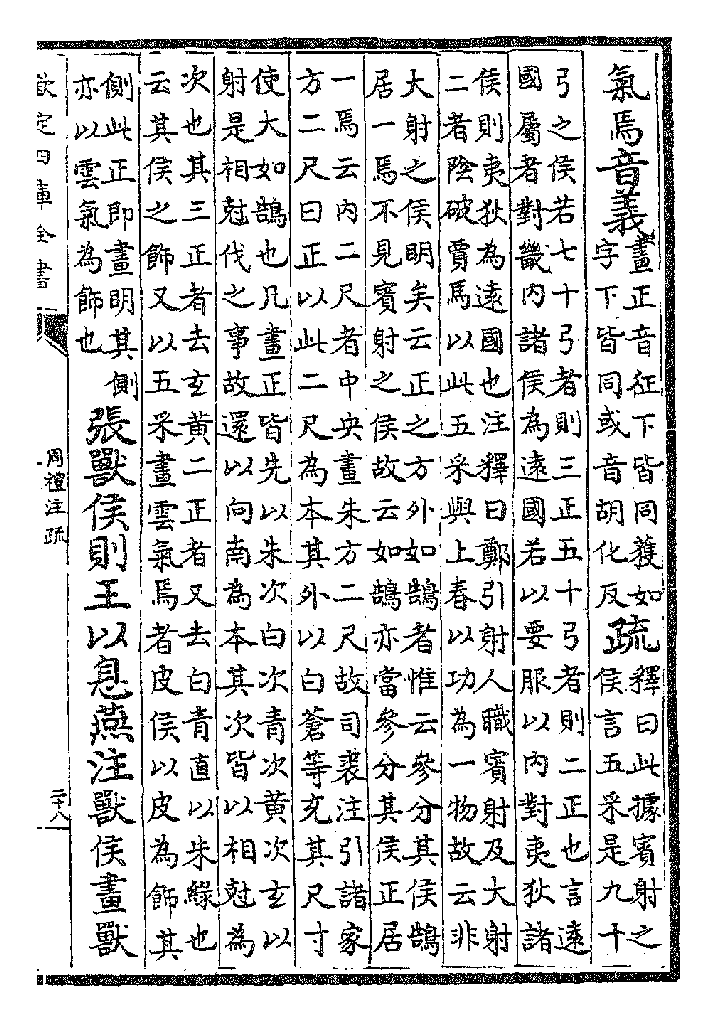 氣焉音義
畫正音征下皆同獲如
字下皆同或音胡化反
疏
釋曰此據賓射之
侯言五采是九十
弓之侯若七十弓者則三正五十弓者則二正也言遠
國屬者對畿内諸侯為遠國若以要服以内對夷狄諸
侯則夷狄為遠國也注釋曰鄭引射人職賓射及大射
二者陰破賈馬以此五采與上春以功為一物故云非
大射之侯明矣云正之方外如鵠者惟云參分其侯鵠
居一焉不見賓射之侯故云如鵠亦當參分其侯正居
一焉云内二尺者中央畫朱方二尺故司裘注引諸家
方二尺曰正以此二尺為本其外以白蒼等充其尺寸
使大如鵠也凡畫正皆先以朱次白次青次黄次玄以
射是相尅伐之事故還以向南為本其次皆以相尅為
次也其三正者去玄黄二正者又去白青直以朱緑也
云其侯之飾又以五采畫雲氣焉者皮侯以皮為飾其
側此正即畫明其側
亦以雲氣為飾也
張獸侯則王以息燕注獸侯畫獸
欽定四庫全書
周禮注疏
二十八